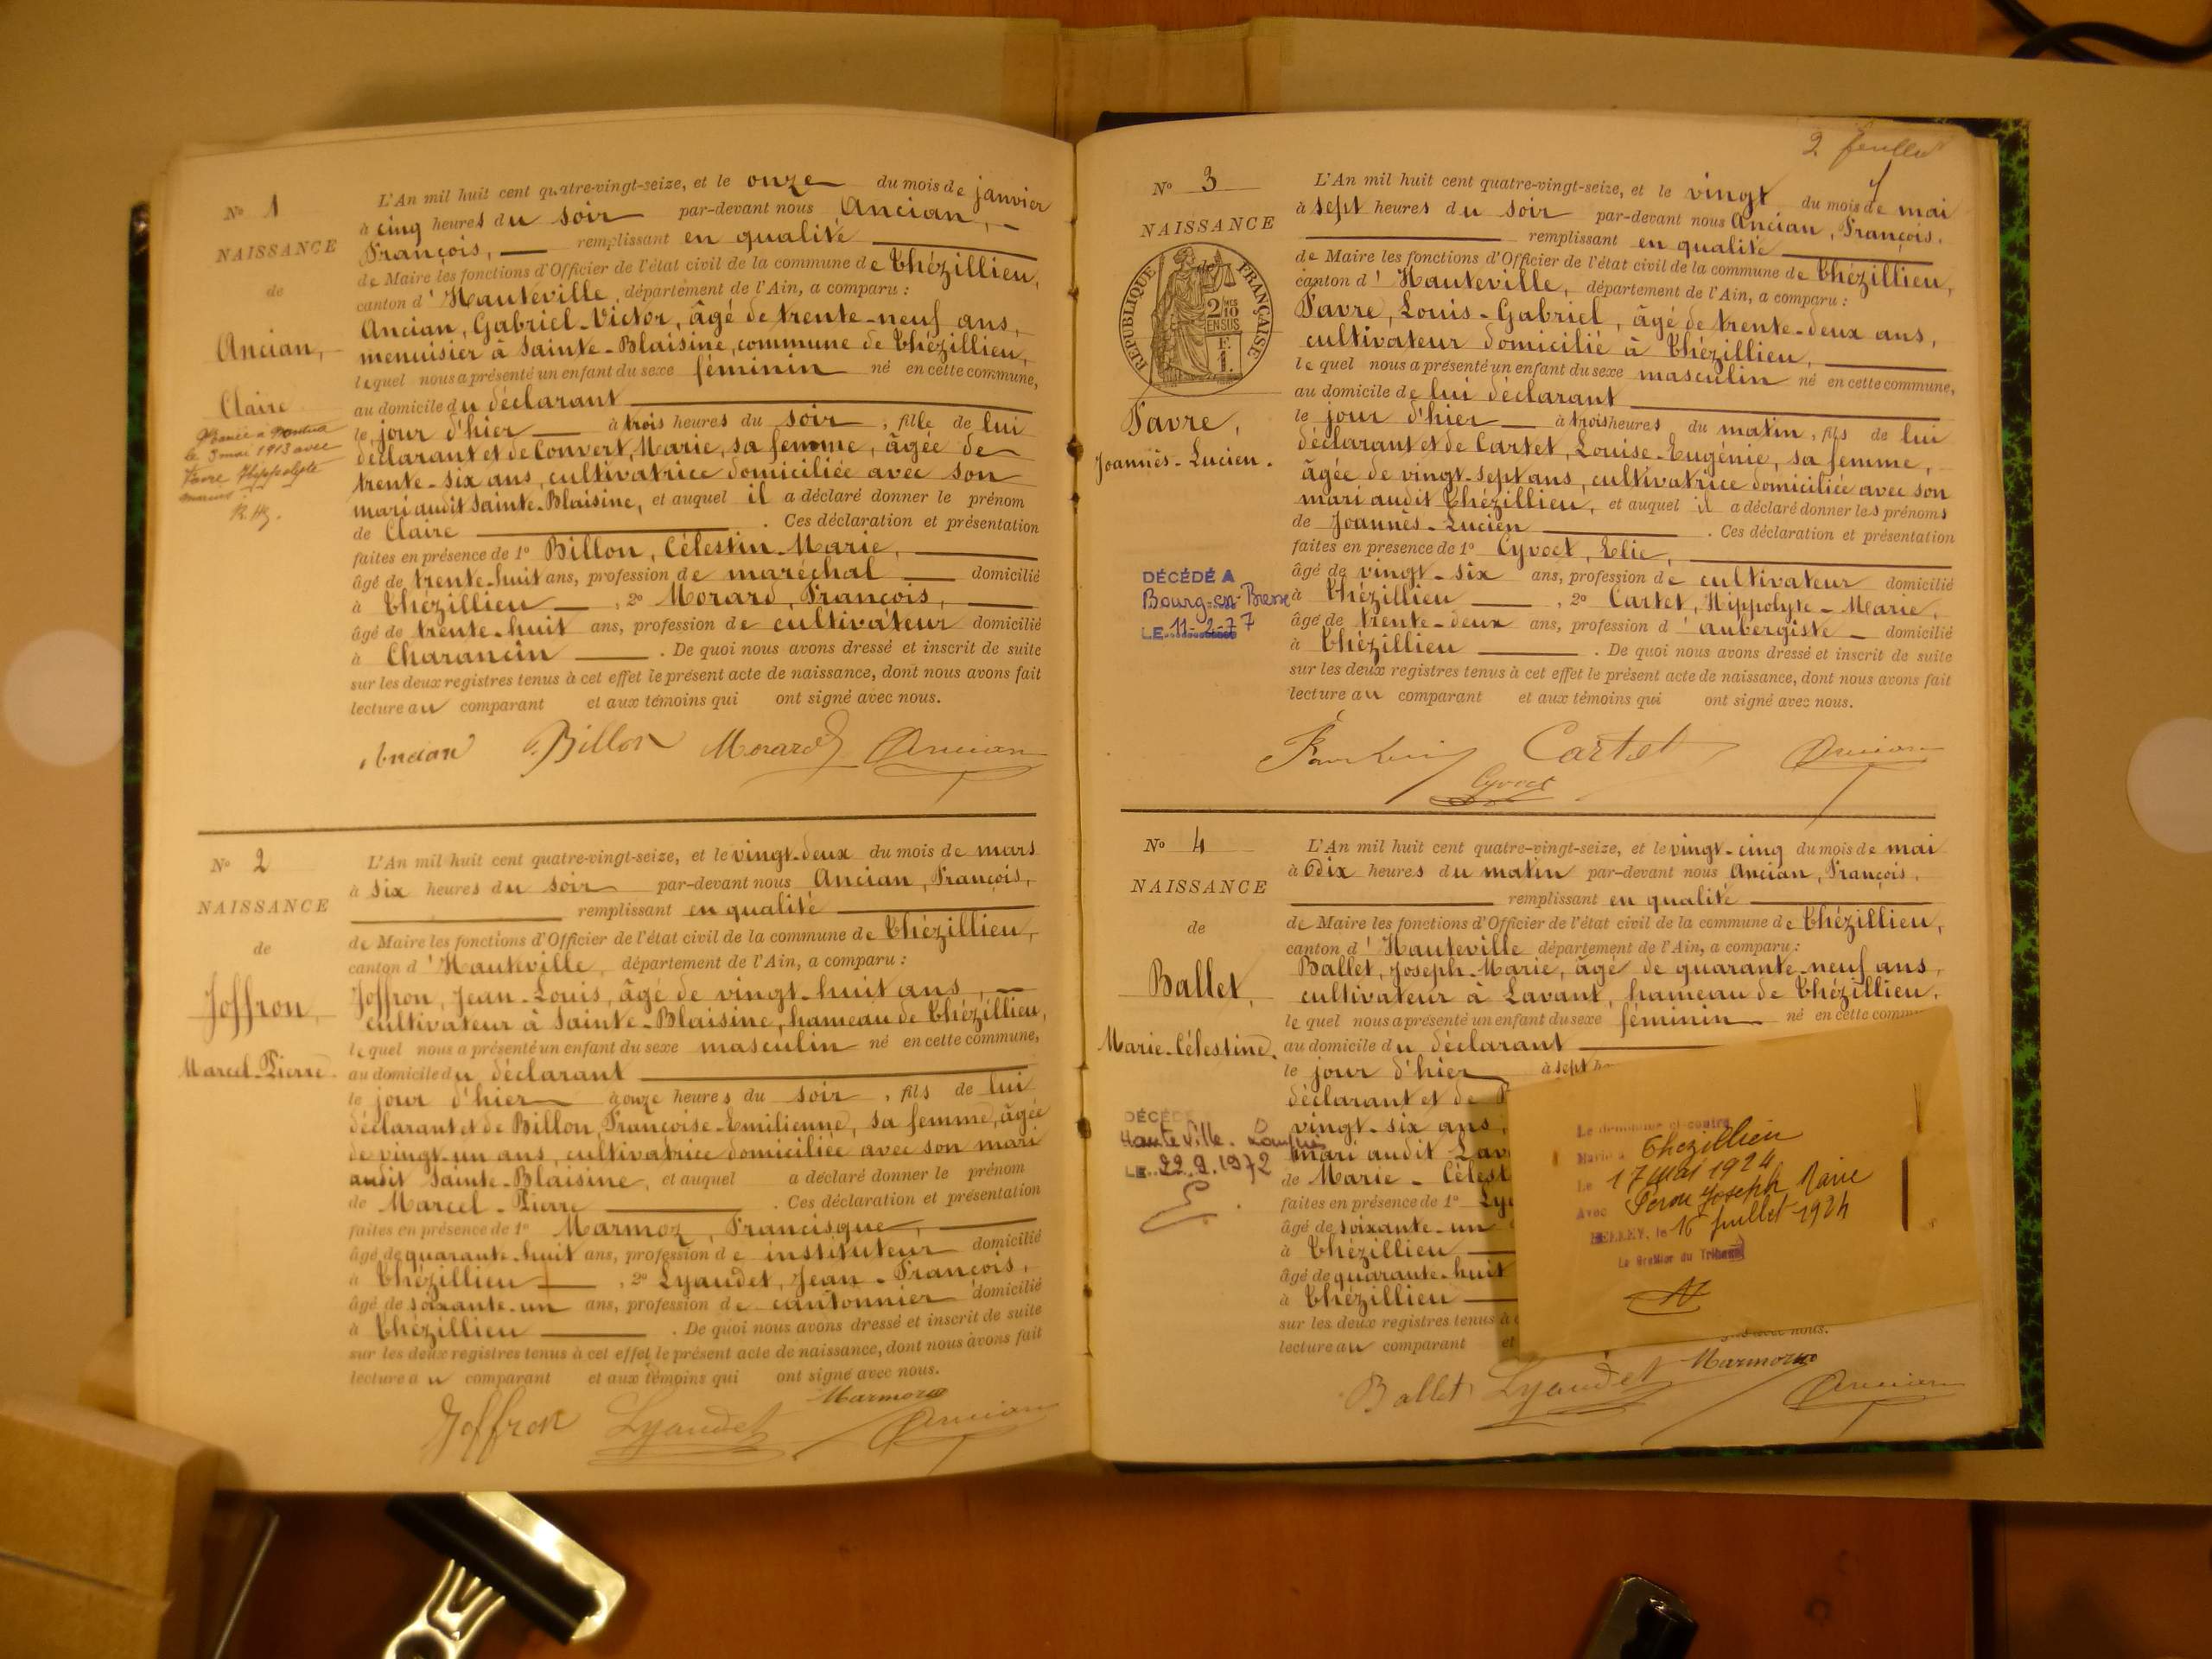 Nº 1
NAISSANCE
de
Ancian,
Claire
le 3 mai 1913 avec
Favre Hippolyte
L'An mil huit cent quatre-vingt-seize, et le onze du mois de janvier
à cinq heures du soir par-devant nous Ancian,
François, remplissant en qualité
de Maire les fonctions d'Officier de l'état civil de la commune de Thézillieu,
canton d'Hauteville, département de l'Ain, a comparu :
Ancian, Gabriel-Victor, âgé de trente-neuf ans,
menuisier à Sainte-Blaisine, commune de Thézillieu,
lequel nous a présenté un enfant du sexe féminin né en cette commune,
au domicile du déclarant
le jour d'hier à trois heures du soir, fille de lui
déclarant et de Convert, Marie, sa femme, âgée de
trente-six ans, cultivatrice domiciliée avec son
mari audit Sainte-Blaisine, et auquel il a déclaré donner le prénom
de Claire . Ces déclaration et présentation
faites en présence de 1º Billon, Célestin-Marie,
âgé de trente-huit ans, profession de maréchal domicilié
à Thézillieu , 2º Morard, François,
âgé de trente-huit ans, profession de cultivateur domicilié
à Charancin . De quoi nous avons dressé et inscrit de suite
sur les deux registres tenus à cet effet le présent acte de naissance, dont nous avons fait
lecture au comparant et aux témoins qui ont signé avec nous.
Ancian Billon Morard Ancian
Nº 2
NAISSANCE
de
Joffron,
Marcel-Pierre.
L'An mil huit cent quatre-vingt-seize, et le vingt-deux du mois de mars
à six heures du soir par-devant nous Ancian, François,
remplissant en qualité
de Maire les fonctions d'Officier de l'état civil de la commune de Thézillieu,
canton d'Hauteville, département de l'Ain, a comparu :
Joffron, Jean-Louis, âgé de vingt-huit ans,
cultivateur à Sainte-Blaisine, hameau de Thézillieu,
lequel nous a présenté un enfant du sexe masculin né en cette commune,
au domicile du déclarant
le jour d'hier à onze heures du soir, fils de lui
déclarant et de Billon, Françoise-Emilienne, sa femme, âgée
de vingt-un ans, cultivatrice domiciliée avec son mari
audit Sainte-Blaisine, et auquel a déclaré donner le prénom
de Marcel-Pierre . Ces déclaration et présentation
faites en présence de 1º Marmoz, Francisque,
âgé de quarante-huit ans, profession de instituteur domicilié
à Thézillieu , 2º Lyaudet, Jean-François,
âgé de soixante-un ans, profession de cantonnier domicilié
à Thézillieu . De quoi nous avons dressé et inscrit de suite
sur les deux registres tenus à cet effet le présent acte de naissance, dont nous avons fait
lecture au comparant et aux témoins qui ont signé avec nous.
Joffron Lyaudet Marmoz Ancian
2 feuillet
Nº 3
NAISSANCE
de
RÉPUBLIQUE FRANÇAISE
2/10
EN SUS
F.
1.
Favre,
Joannès-Lucien.
DÉCÉDÉ A
Bourg-en-Bresse
LE 11-2-77
L'An mil huit cent quatre-vingt-seize, et le vingt du mois de mai
à sept heures du soir par-devant nous Ancian, François,
remplissant en qualité
de Maire les fonctions d'Officier de l'état civil de la commune de Thézillieu,
canton d'Hauteville, département de l'Ain, a comparu :
Favre, Louis-Gabriel, âgé de trente-deux ans,
cultivateur domicilié à Thézillieu,
lequel nous a présenté un enfant du sexe masculin né en cette commune,
au domicile de lui déclarant
le jour d'hier à trois heures du matin, fils de lui
déclarant et de Cartet, Louise-Eugénie, sa femme,
âgée de vingt-sept ans, cultivatrice domiciliée avec son
mari audit Thézillieu, et auquel il a déclaré donner les prénoms
de Joannès-Lucien . Ces déclaration et présentation
faites en présence de 1º Cyvoct, Elie,
âgé de vingt-six ans, profession de cultivateur domicilié
à Thézillieu , 2º Cartet, Hippolyte-Marie,
âgé de trente-deux ans, profession d'aubergiste domicilié
à Thézillieu . De quoi nous avons dressé et inscrit de suite
sur les deux registres tenus à cet effet le présent acte de naissance, dont nous avons fait
lecture au comparant et aux témoins qui ont signé avec nous.
Cartet Ancian
Cyvoct
Nº 4
NAISSANCE
de
Ballet,
Marie-Célestine.
DÉCÉDÉ
Hauteville-Lompnes
LE 22.9.1972
L'An mil huit cent quatre-vingt-seize, et le vingt-cinq du mois de mai
à dix heures du matin par-devant nous Ancian, François,
remplissant en qualité
de Maire les fonctions d'Officier de l'état civil de la commune de Thézillieu,
canton d'Hauteville département de l'Ain, a comparu :
Ballet, Joseph-Marie, âgé de quarante-neuf ans,
cultivateur à Lavant, hameau de Thézillieu,
lequel nous a présenté un enfant du sexe féminin né en cette comm
au domicile du déclarant
le jour d'hier à sept h
déclarant et de
vingt-six ans,
mari audit Lav
de Marie-Célest
faites en présence de 1º Ly
âgé de soixante-un
à Thézillieu
âgé de quarante-huit
à Thézillieu
sur les deux registres tenus à c
lecture au comparant et
Le dénommé ci-contre
Marié à Thézillieu
Le 17 mai 1924
Avec Joseph Marie
BELLEY, le 16 juillet 1924
Le Greffier du Tribunal
avec nous.
Ballet Lyaudet Marmoz Ancian